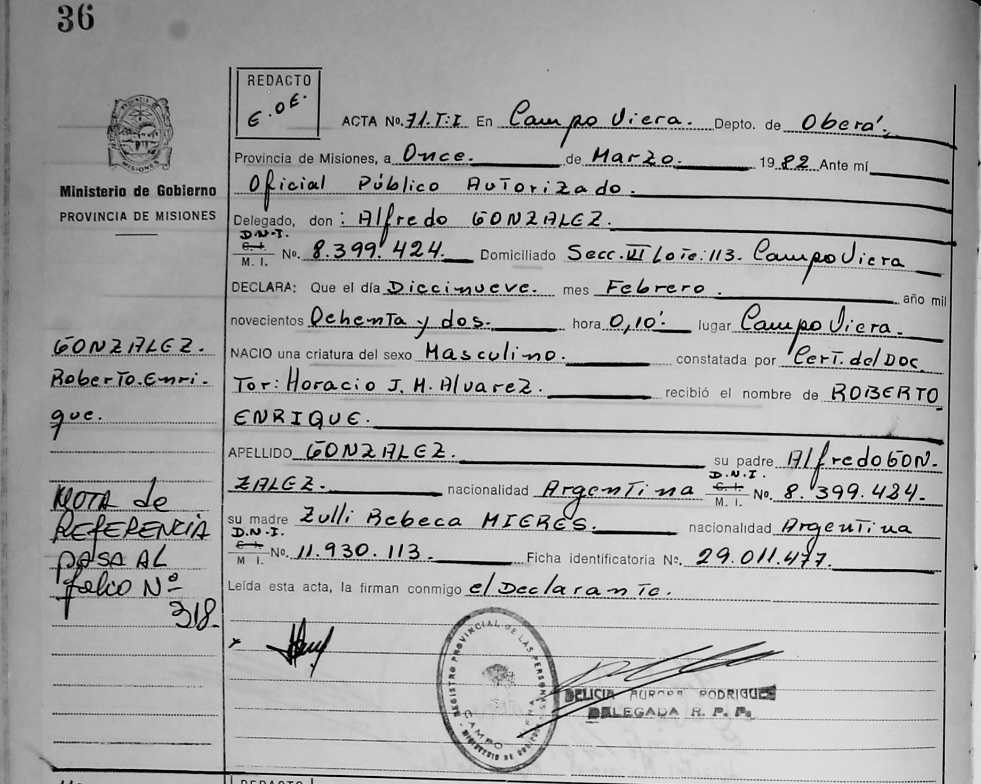 36
REDACTO
E.OE.
ACTA No. 71.T:I En Campo Viera. Depto. de Oberá.
Provincia de Misiones, a Once. de Marzo. 1982 Ante mí
Oficial Público Autorizado.
Delegado, don: Alfredo GONZALEZ.
D.N.I.
C.I.
M. I. No. 8.399.424. Domiciliado Secc. VI Lote: 113. Campo Viera
DECLARA: Que el día Diecinueve. mes Febrero. año mil
novecientos Ochenta y dos. hora 0,10'. lugar Campo Viera.
NACIO una criatura del sexo Masculino. constatada por Cert. del Doc
Tor: Horacio J. H. Alvarez. recibió el nombre de ROBERTO
ENRIQUE.
APELLIDO GONZALEZ. su padre Alfredo GON.
D.N.I.
C.I.
ZALEZ. nacionalidad Argentina M. I. No. 8.399.424.
su madre Zulli Rebeca MIERES. nacionalidad Argentina
D.N.I.
C.I.
M I. No. 11.930.113. Ficha identificatoria No. 29.011.477.
Leída esta acta, la firman conmigo el Declarante.
Ministerio de Gobierno
PROVINCIA DE MISIONES
GONZALEZ.
Roberto. Enri-
que.
NOTA de
REFERENCIA
PASA AL
folio Nº
318.
REGISTRO PROVINCIAL DE LAS PERSONAS
CAMPO
DELICIA AURORA RODRIGUEZ
DELEGADA R. P. P.
REDACTO